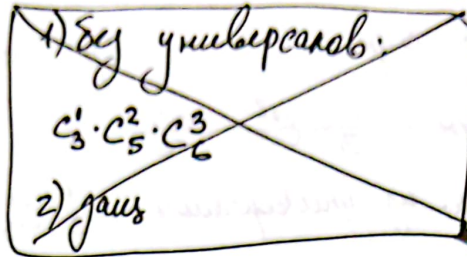 1) без универсалов:
C₃¹ · C₅² · C₆³
2)